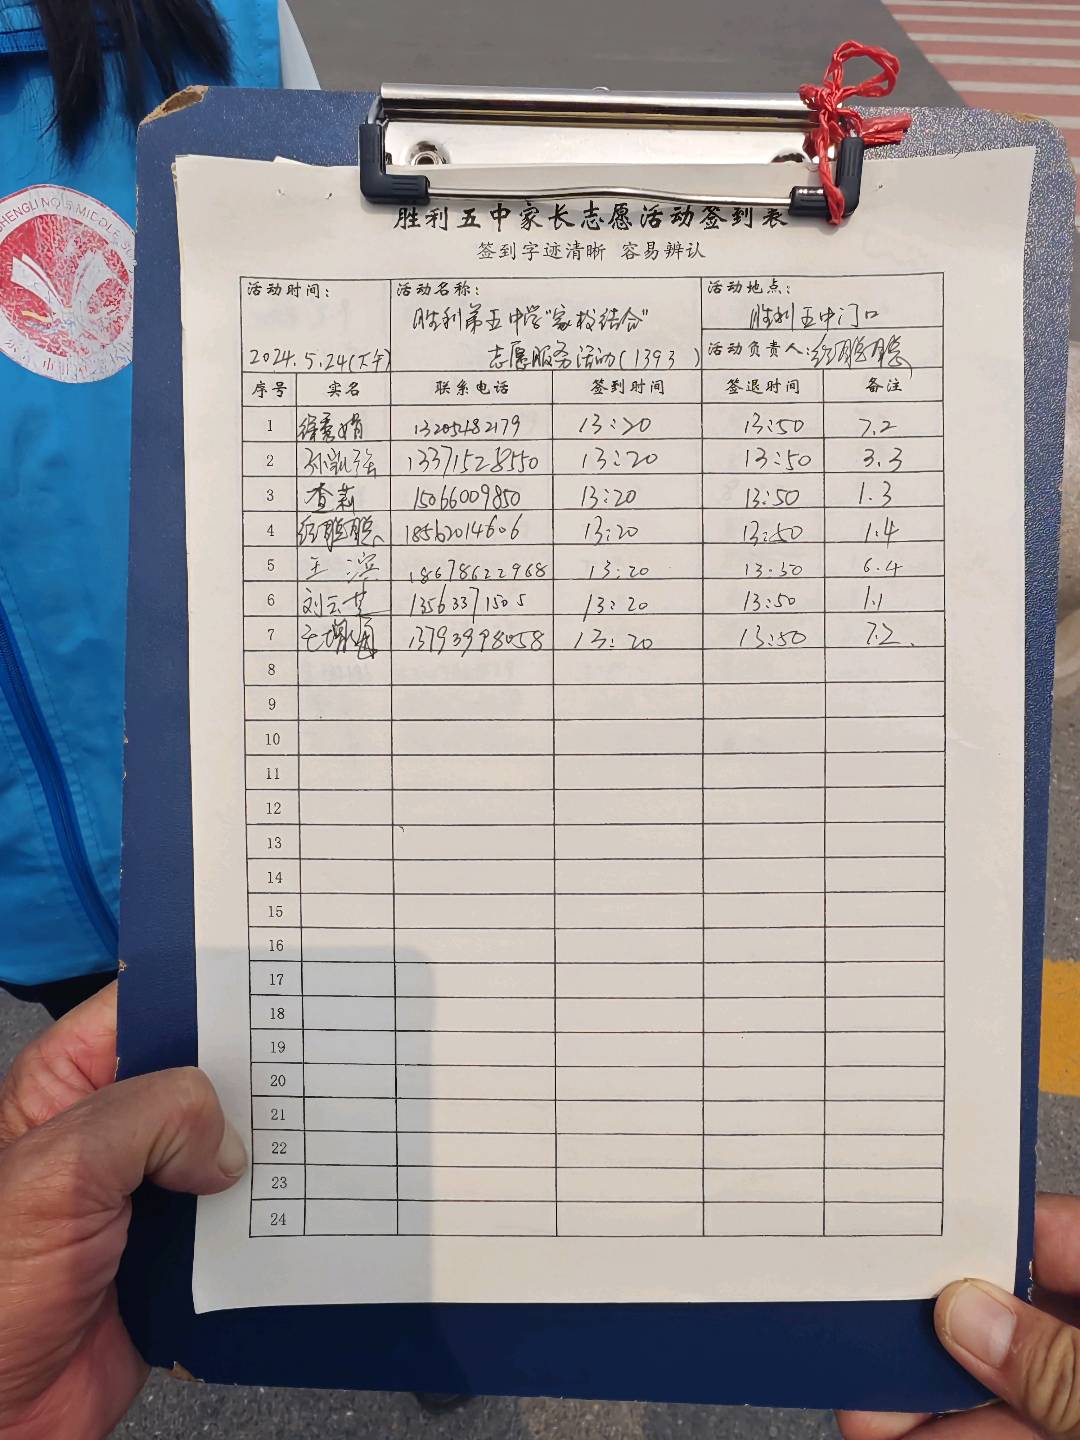 胜利五中家长志愿活动签到表
签到字迹清晰 容易辨认
活动时间: 活动名称: 活动地点:
胜利第五中学"家校结合" 胜利五中门口
2024.5.24(下午) 志愿服务活动(1393) 活动负责人:
序号 实名 联系电话 签到时间 签退时间 备注
1 徐秀娟 13205482179 13:20 13:50 7.2
2 孙凯强 13371528550 13:20 13:50 3.3
3 查莉 15066009850 13:20 13:50 1.3
4 18562014606 13:20 13:50 1.4
5 王滨 18678622968 13:20 13:50 6.4
6 刘云芝 13563371505 13:20 13:50 1.1
7 13793998058 13:20 13:50 7.2
8
9
10
11
12
13
14
15
16
17
18
19
20
21
22
23
24